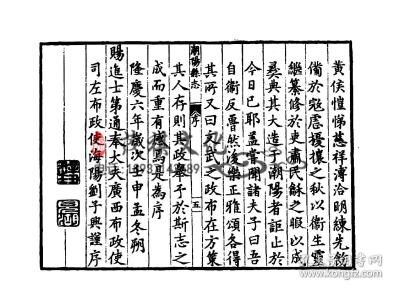 黃侯愷悌慈祥溥洽明練先幾
備於寇虜擾攘之秋以衛生靈
繼纂修於吏肅民穌之暇以成
彝典其大造于潮陽者詎止於
今日已耶孟子聞諸夫子曰吾
自衛反魯然後樂正雅頌各得
其所又曰文武之政布在方策
其人存則其政舉予於斯志之
成而重有感焉是為序
隆慶六年歲次壬申孟冬朔
賜進士第通奉大夫廣西布政使
司左布政使海陽劉子興謹序
潮陽縣志
序
五